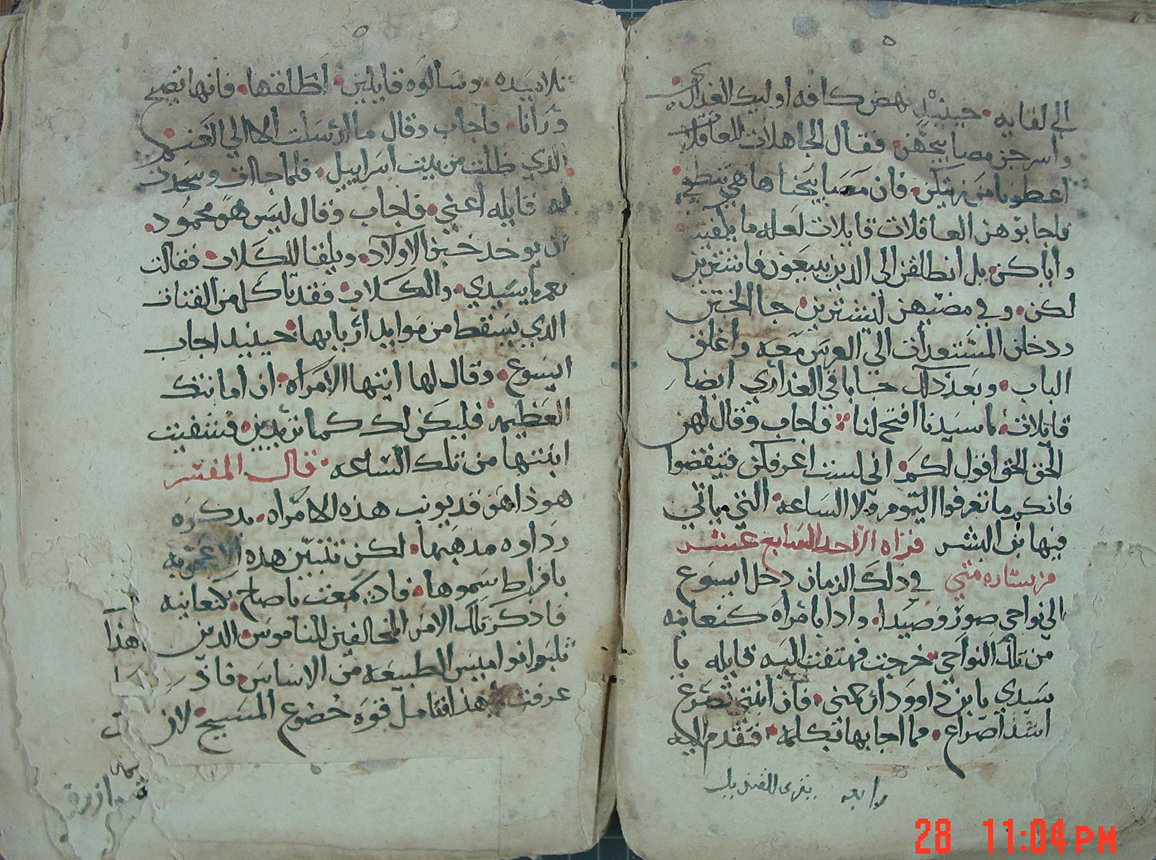 الى لقايه حينيد نهض كافه اوليك العذارى
واسرجن مصابيحهن فقال الجاهلات للعاقلات
اعطونا من زيتكن فان مصابيحنا هي تنطفي
فاجابوهن العاقلات قايلات لعله ما يكفينا
واياكن بل انطلقن الى الدين يبيعون فاشترين
لكن وفي مضيهن ليشترين جا الختن
ودخلن المستعدات الي العرس معه واغلق
الباب وبعد دلك جا باقي العذاري ايضا
قايلات يا سيدنا افتح لنا فاجاب وقال لهن
الحق الحق اقول لكم اني لست اعرفكن فتيقضوا
فانكم ما تعرفوا اليوم ولا الساعة التي ياتي
فيها بن البشر قراه الاحد السابع عشر
من بشاره متي في داك الزمان دخل ايسوع
الي نواحي صور وصيدا وادا بامراه كنعانيه
من تلك النواحي خرجت فهتفت اليه قايله يا
سيدي يا بن داوود ارحمني فان ابنتي تصرع
اشد اصراع فما اجابها بكلمه فتقدم اليه
رابعه
تلاميده وسالوه قايلين اطلقها فانها تصيح
ورانا فاجاب وقال ما ارسلت الا الي الغنم
الدي ظلت من بيت اسراييل فلما جات وسجدت
له قايله اعني فاجاب وقال ليس هو محمود
ان يوخد خبز الاولاد ويلقا للكلاب فقالت
نعم يا سيدي والكلاب فقد تاكل من الفتات
الدي يسقط من موايد اربابها حينيد اجاب
ايسوع وقال لها ايتها الامراه ان امانتك
العظيمه فليكن لك كما تريدين فشفيت
ابنتها من تلك الساعه قال المفسر
هودا هو قد يونب هذه الامراه بدكره
رداوه مدهبها لكن تتبين هده الاعجوبه
بافراط سموها فاد سمعت ياصاح كنعانيه
فادكر تلك الامم المخالفين للناموس الدين
قلبوا نواميس الطبيعه من الاساس فاد
عرفت هذا فتامل قوه خضوع المسيح لان
هذا